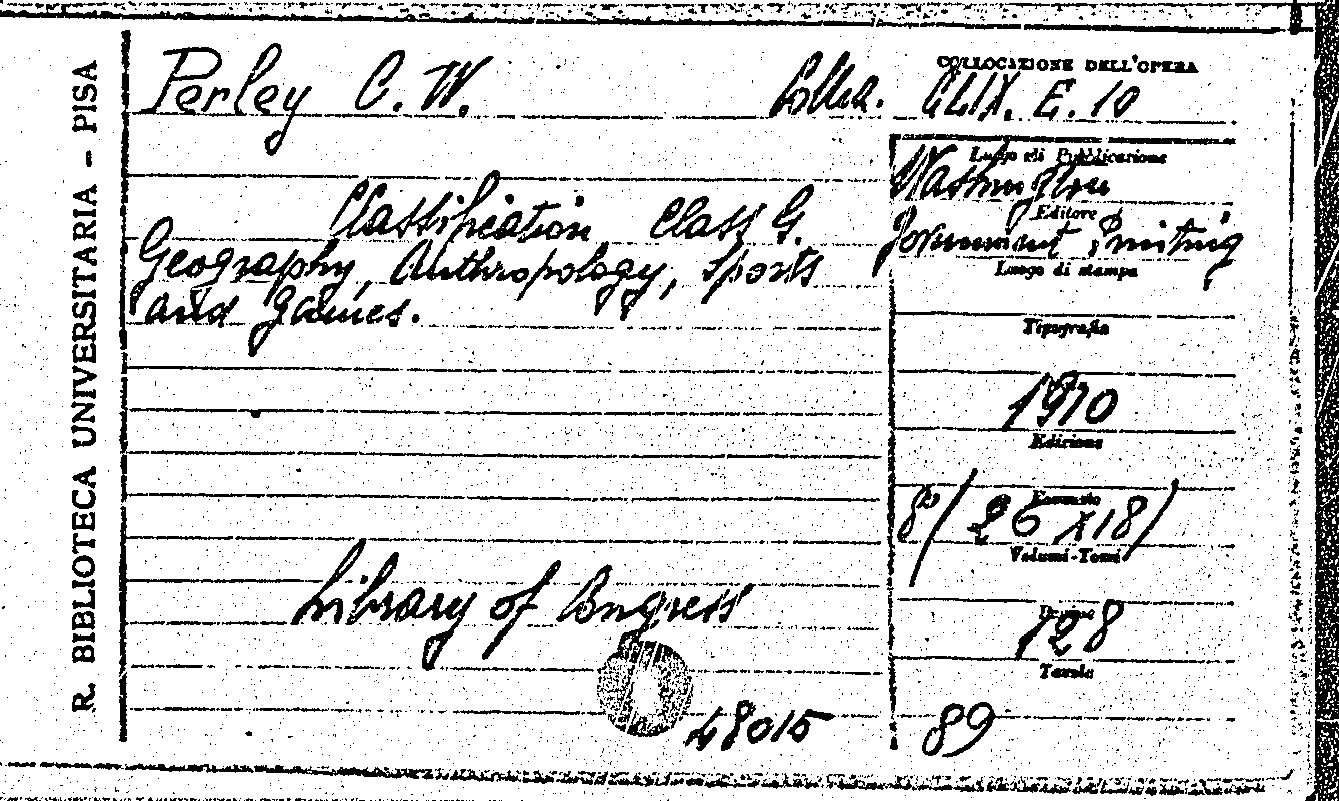 R. BIBLIOTECA UNIVERSITARIA - PISA
Perley C. W.
Colloc.
COLLOCAZIONE DELL'OPERA
CLIX. E. 10
Luogo di Pubblicazione
Washington
Classification Class G.
Editore
Government Printing
Geography, Anthropology, Sports
and games.
Luogo di stampa
Tipografia
1910
Edizione
Formato
8º/ 26 x 18/
Volumi-Tomi
Library of Congress
128
Tavole
48015
89